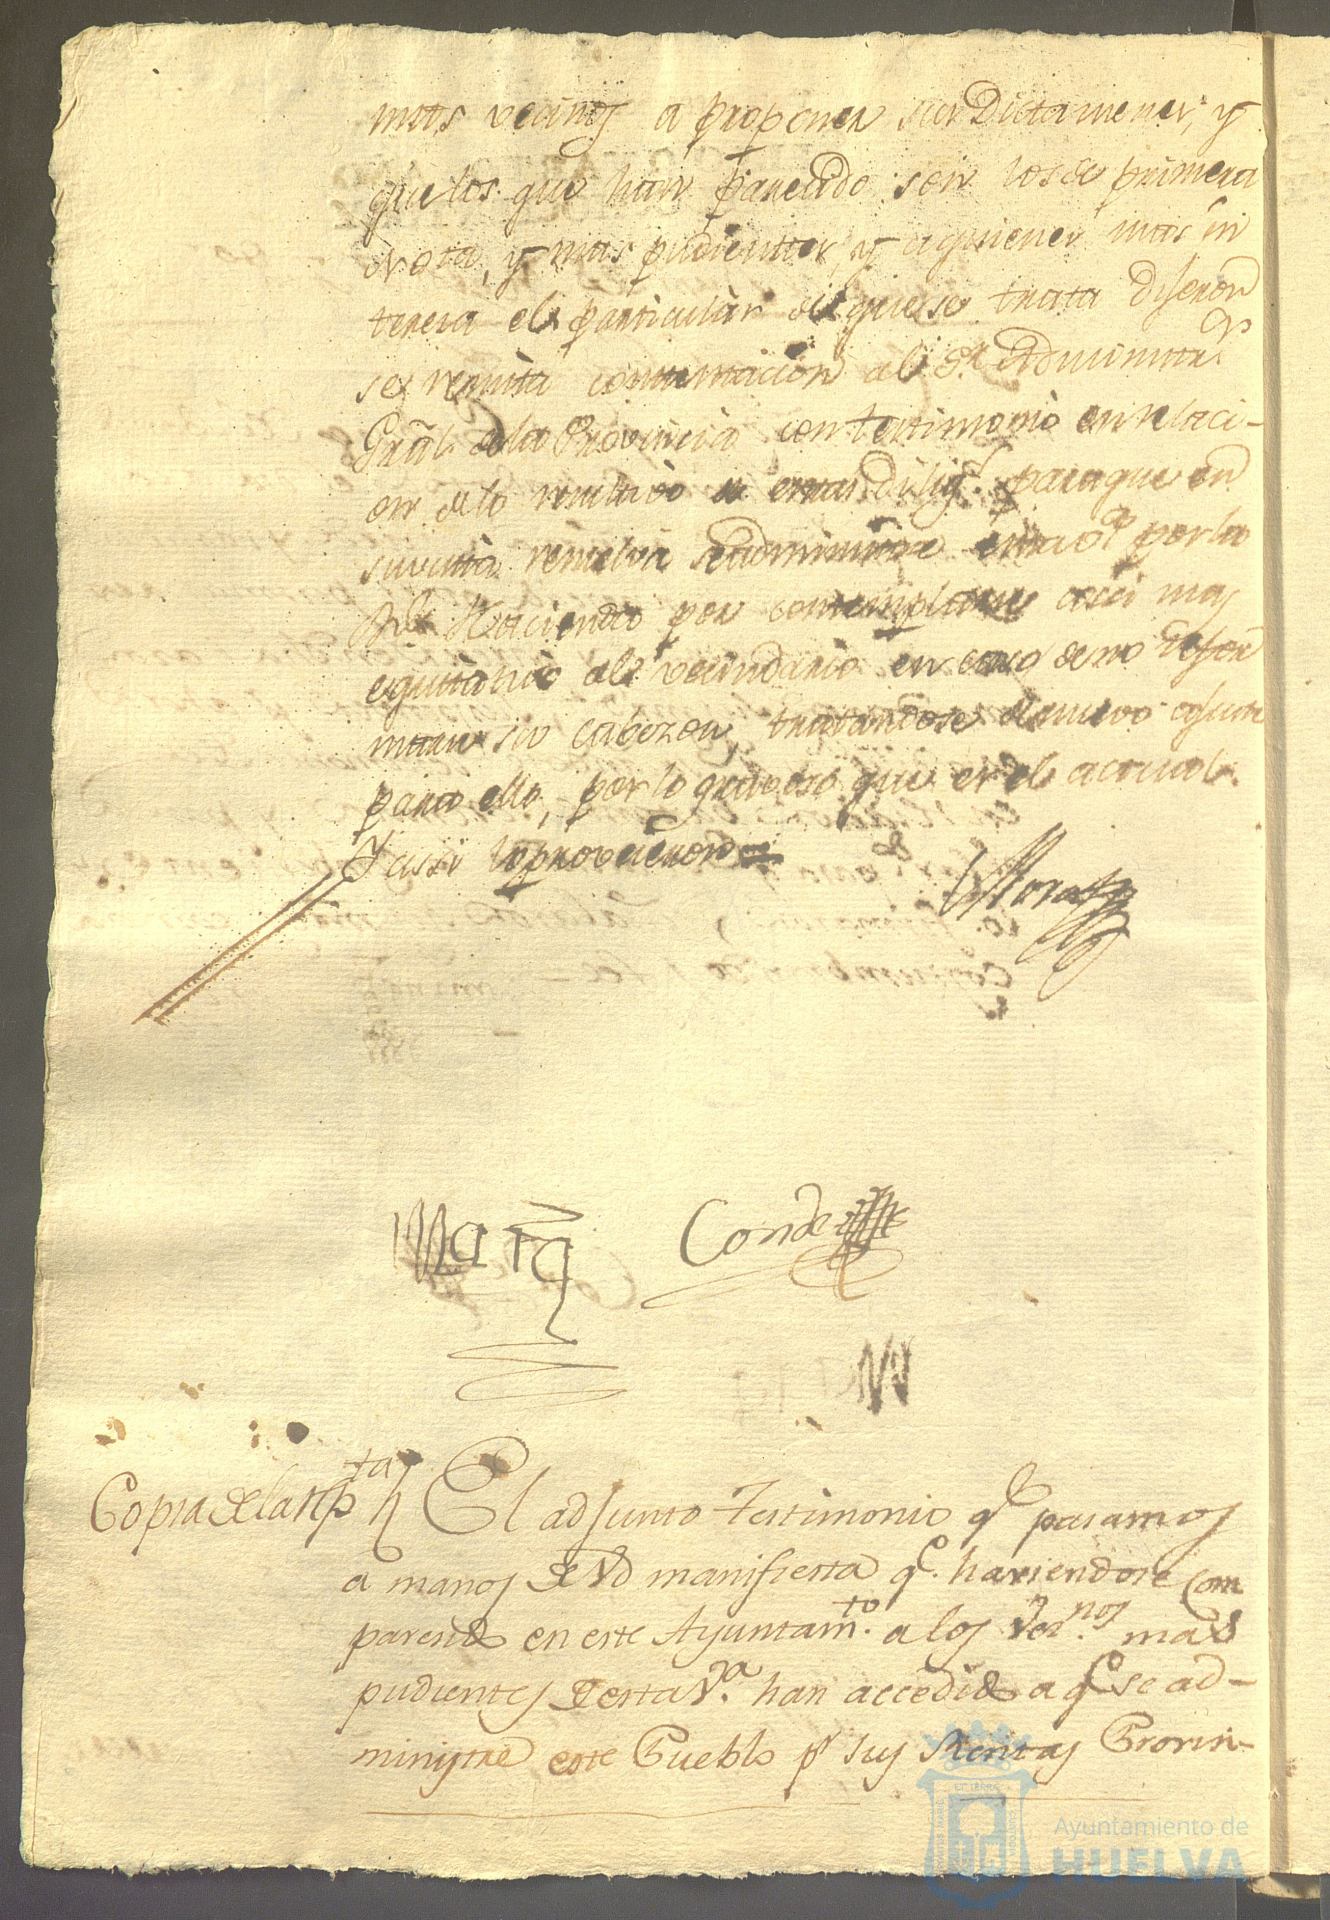 mas vecinos a proponer sus Dictamenes, y
que los que han parecido son los de primera
Nota, y mas pudientes, y a quienes mas in
teresa el particular de que se trata dijeron
se remita contextacion al Sr. Administrr
Gral de la Provincia con testimonio en relaci-
on de lo resultivo de estas Dilig.s para que en
su vista resuelva se administre por la
Rl. Hacienda por contemplarse assi mas
equitativo al vecindario en caso de no refor
marse su cabezon, tratandose de nuevo ajuste
para ello, por lo gravoso que es el actual.
Y assi lo proveieron
Mora
Mara
Conde
Copia de la resp.ta
El adjunto Testimonio q.e pasamos
a manos de Vd manifiesta q.e haviendose Com
parecido en este Ayuntam.to a los Vez.nos mas
pudientes de esta V.a han accedido a q.e se ad-
ministre este Pueblo p.r sus Rentas Provin-
Ayuntamiento de
HUELVA